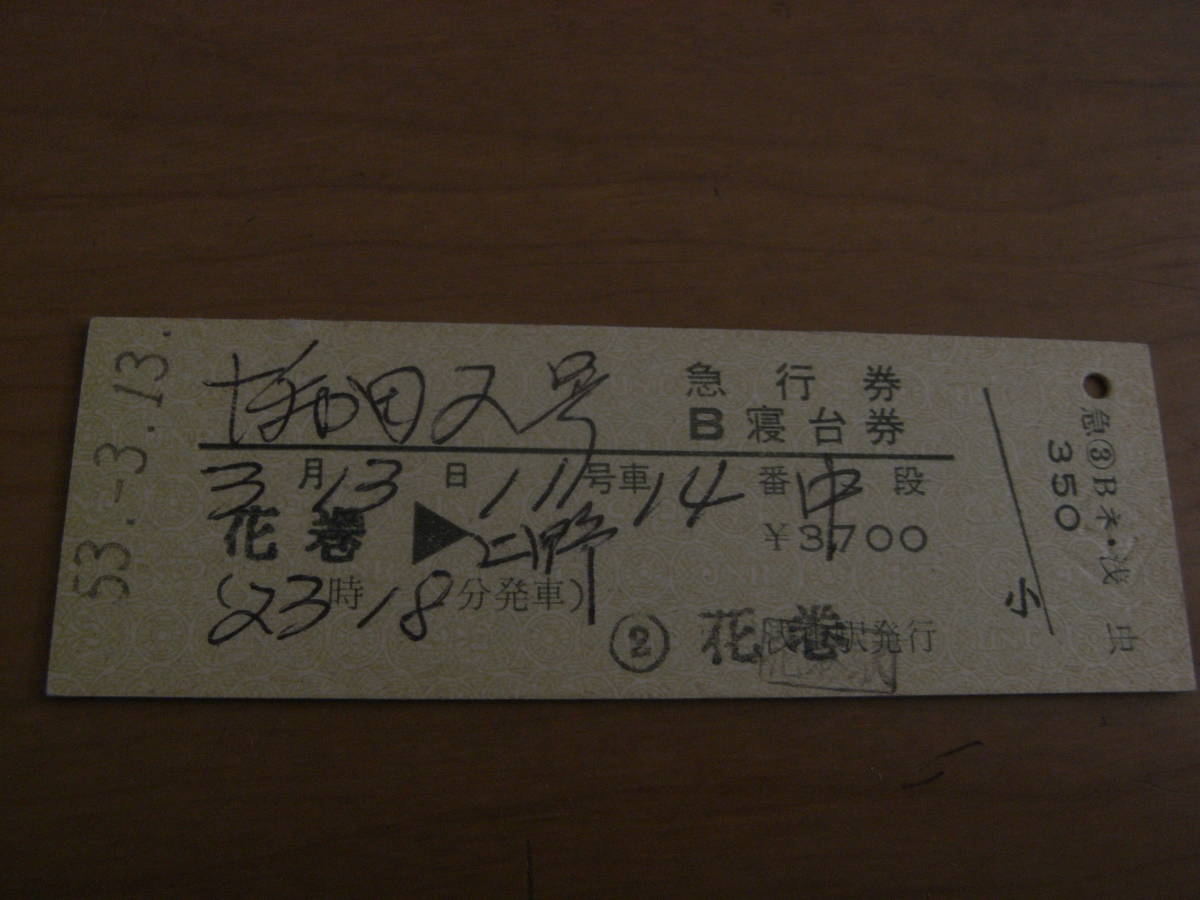 53.-3.13.
十和田2号
急行券
B寝台券
3月13日11号車14番中段
花巻▶上野
¥3,700
(23時18分発車)
② 花巻駅発行
小
急③Bネ・浅虫
350